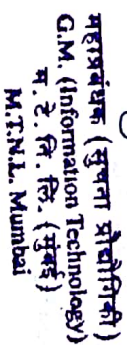 महाप्रबंधक (सुचना प्रौद्योगिकी)
G.M. (Information Technology)
म. टे. नि. लि. (मुंबई)
M.T.N.L. Mumbai